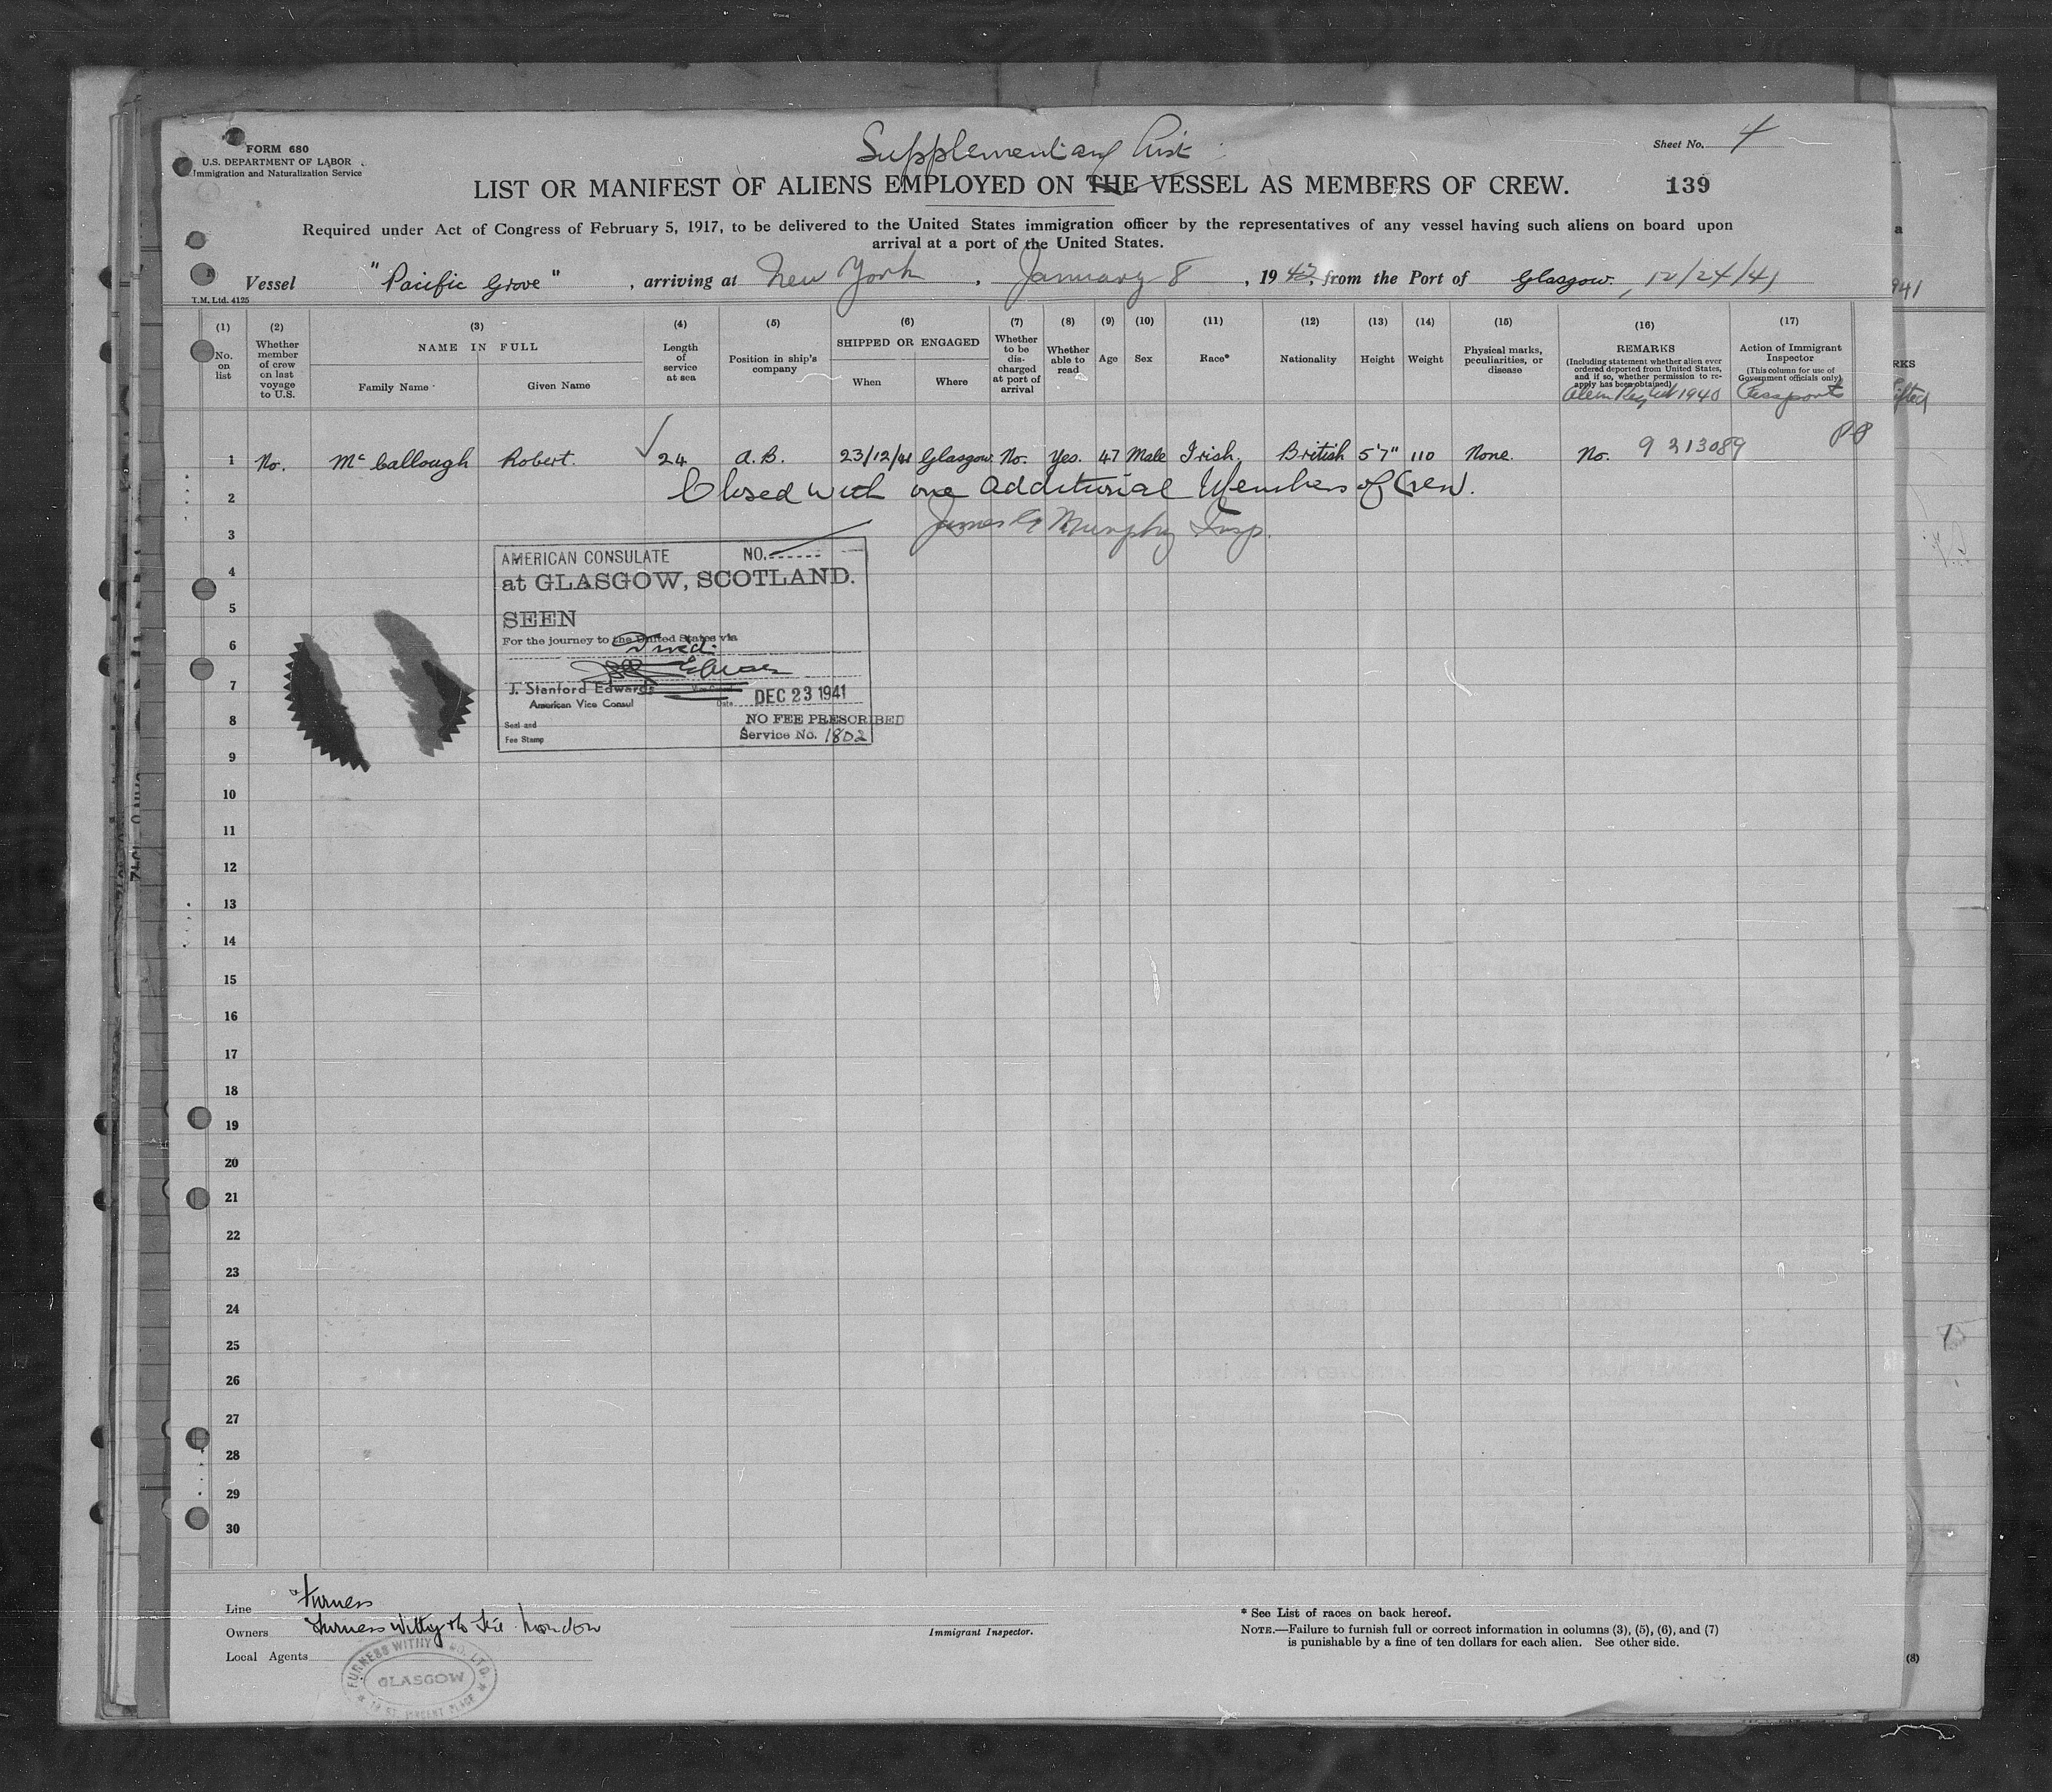 Supplementary List
Sheet No. 4
FORM 680
U.S. DEPARTMENT OF LABOR
Immigration and Naturalization Service
LIST OR MANIFEST OF ALIENS EMPLOYED ON THE VESSEL AS MEMBERS OF CREW.
139
Required under Act of Congress of February 5, 1917, to be delivered to the United States immigration officer by the representatives of any vessel having such aliens on board upon
arrival at a port of the United States.
Vessel "Pacific Grove", arriving at New York, January 8, 1942, from the Port of Glasgow. 12/24/41
T.M. Ltd. 4125
(1) (2) (3) (4) (5) (6) (7) (8) (9) (10) (11) (12) (13) (14) (15) (16) (17)
No. on list
Whether member of crew on last voyage to U.S.
NAME IN FULL
Family Name
Given Name
Length of service at sea
Position in ship's company
SHIPPED OR ENGAGED
When
Where
Whether to be dis-charged at port of arrival
Whether able to read
Age
Sex
Race*
Nationality
Height
Weight
Physical marks, peculiarities, or disease
REMARKS
(Including statement whether alien ever ordered deported from United States, and if so, whether permission to re-apply has been obtained)
1940
Action of Immigrant Inspector
(This column for use of Government officials only)
Passports
1 No. McCallough Robert. 24 A.B. 23/12/41 Glasgow. No. Yes. 47 Male Irish. British 5'7" 110 None. No. 9213089 PP
2 Closed with one Additional Members of Crew.
3 James G Murphy Insp.
4
5
6
7
8
9
10
11
12
13
14
15
16
17
18
19
20
21
22
23
24
25
26
27
28
29
30
AMERICAN CONSULATE NO.
at GLASGOW, SCOTLAND.
SEEN
For the journey to the United States via
J. Stanford Edwards
American Vice Consul
Date DEC 23 1941
Seal and
Fee Stamp
NO FEE PRESCRIBED
Service No. 1802
Line Furness
Owners Furness Withy & Co Ltd. London
Local Agents
FURNESS WITHY & CO. LTD.
GLASGOW
ST. VINCENT PLACE
Immigrant Inspector.
* See List of races on back hereof.
NOTE.—Failure to furnish full or correct information in columns (3), (5), (6), and (7)
is punishable by a fine of ten dollars for each alien. See other side.
(8)